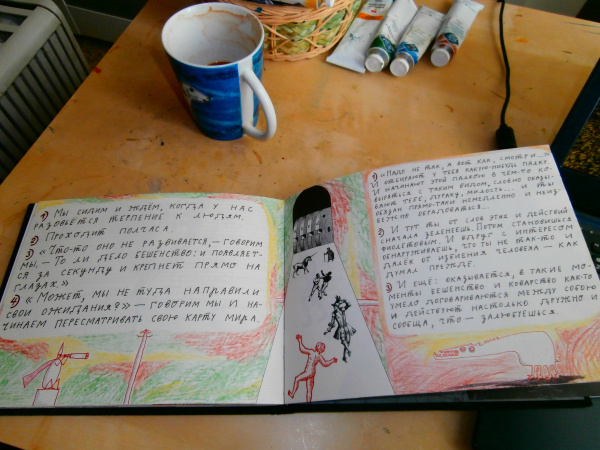 Мы сидим и ждем, когда у нас
разовьётся терпение к людям.
Проходит полчаса.
«Что-то оно не развивается, — говорим
мы, — То ли дело бешенство: и появляет-
ся за секунду и крепнет прямо на
глазах.»
« Может, мы не туда направили
свои ожидания?» — говорим мы и на-
чинаем пересматривать свою карту мира.
«Надо не так, а вот как, смотри...»
И отбирают у тебя какую-нибудь палку
и начинают этой палкой в чем-то ко-
выряться с таким видом, словно оказы-
вают тебе, дураку, милость... и ты
обязан прямо-таки немедленно и неиз-
бежно обрадоваться.
И тут ты от слов этих и действий
сначала зеленеешь. Потом становишься
фиолетовым. И вдруг с интересом
обнаруживаешь, что ты не так-то и
далёк от избиения человека — как
думал прежде.
И ещё: оказывается, в такие мо-
менты бешенство и коварство как-то
умело договариваются между собою
и действуют настолько дружно и
сообща, что — залюбуешься.